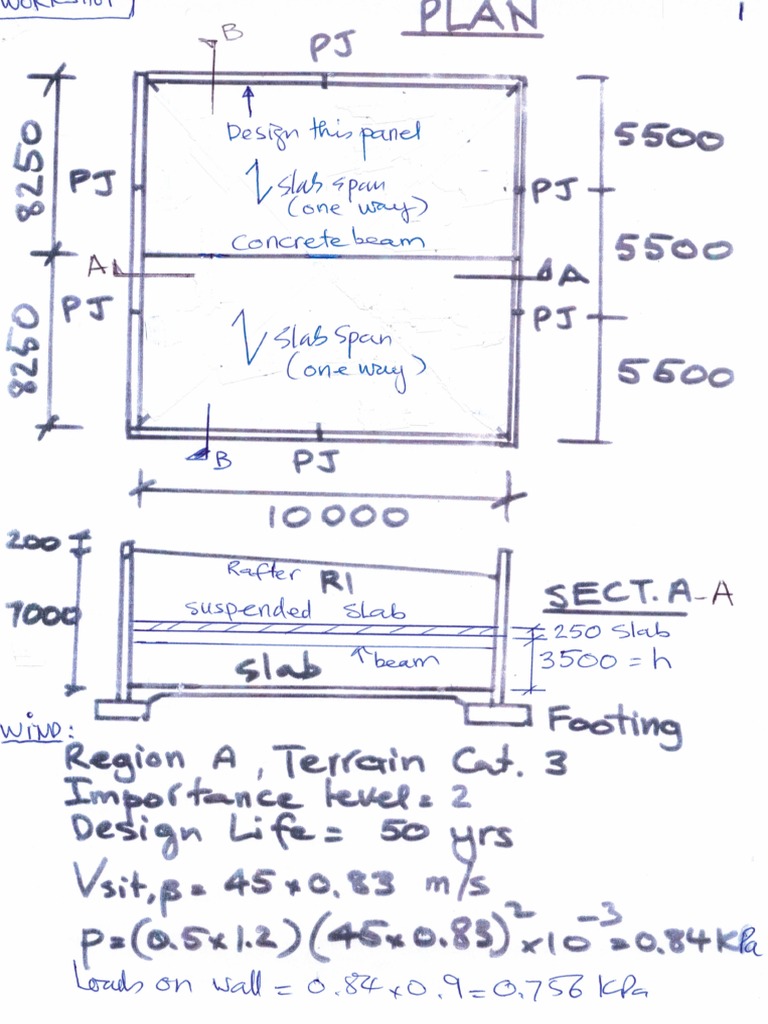 WORKSHOP
PLAN
1
B
PJ
8250
5500
Design this panel
PJ
slab span
(one way)
PJ
concrete beam
5500
A
A
8250
PJ
slab span
(one way)
PJ
5500
B
PJ
10000
200
Rafter R1
SECT. A-A
7000
suspended slab
250 slab
beam
3500 = h
slab
Footing
WIND:
Region A, Terrain Cat. 3
Importance level = 2
Design Life = 50 yrs
Vsit,β = 45 × 0.83 m/s
p = (0.5 × 1.2) (45 × 0.83)² × 10⁻³ = 0.84 KPa
Loads on wall = 0.84 × 0.9 = 0.756 KPa